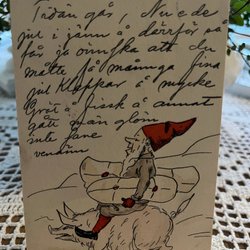 Tidan gås, Nu e de
jul i jänn å derrför så
får ja önnska att du
motte få månnga fina
jul kläppar å mycke
Gröt å fisk å annat
gått män glöm
inte
venänn